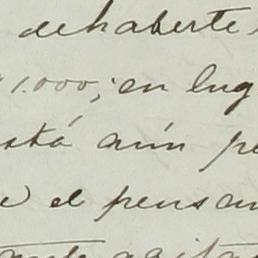 de haberte
1.000; en lug
stá aún pe
e el pensam